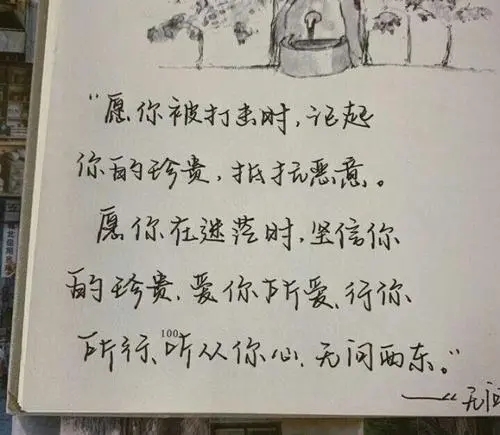 “愿你被打击时，记起
你的珍贵，抵抗恶意。
愿你在迷茫时，坚信你
的珍贵，爱你所爱，行你
所行，听从你心，无问西东。”
100
——《无问